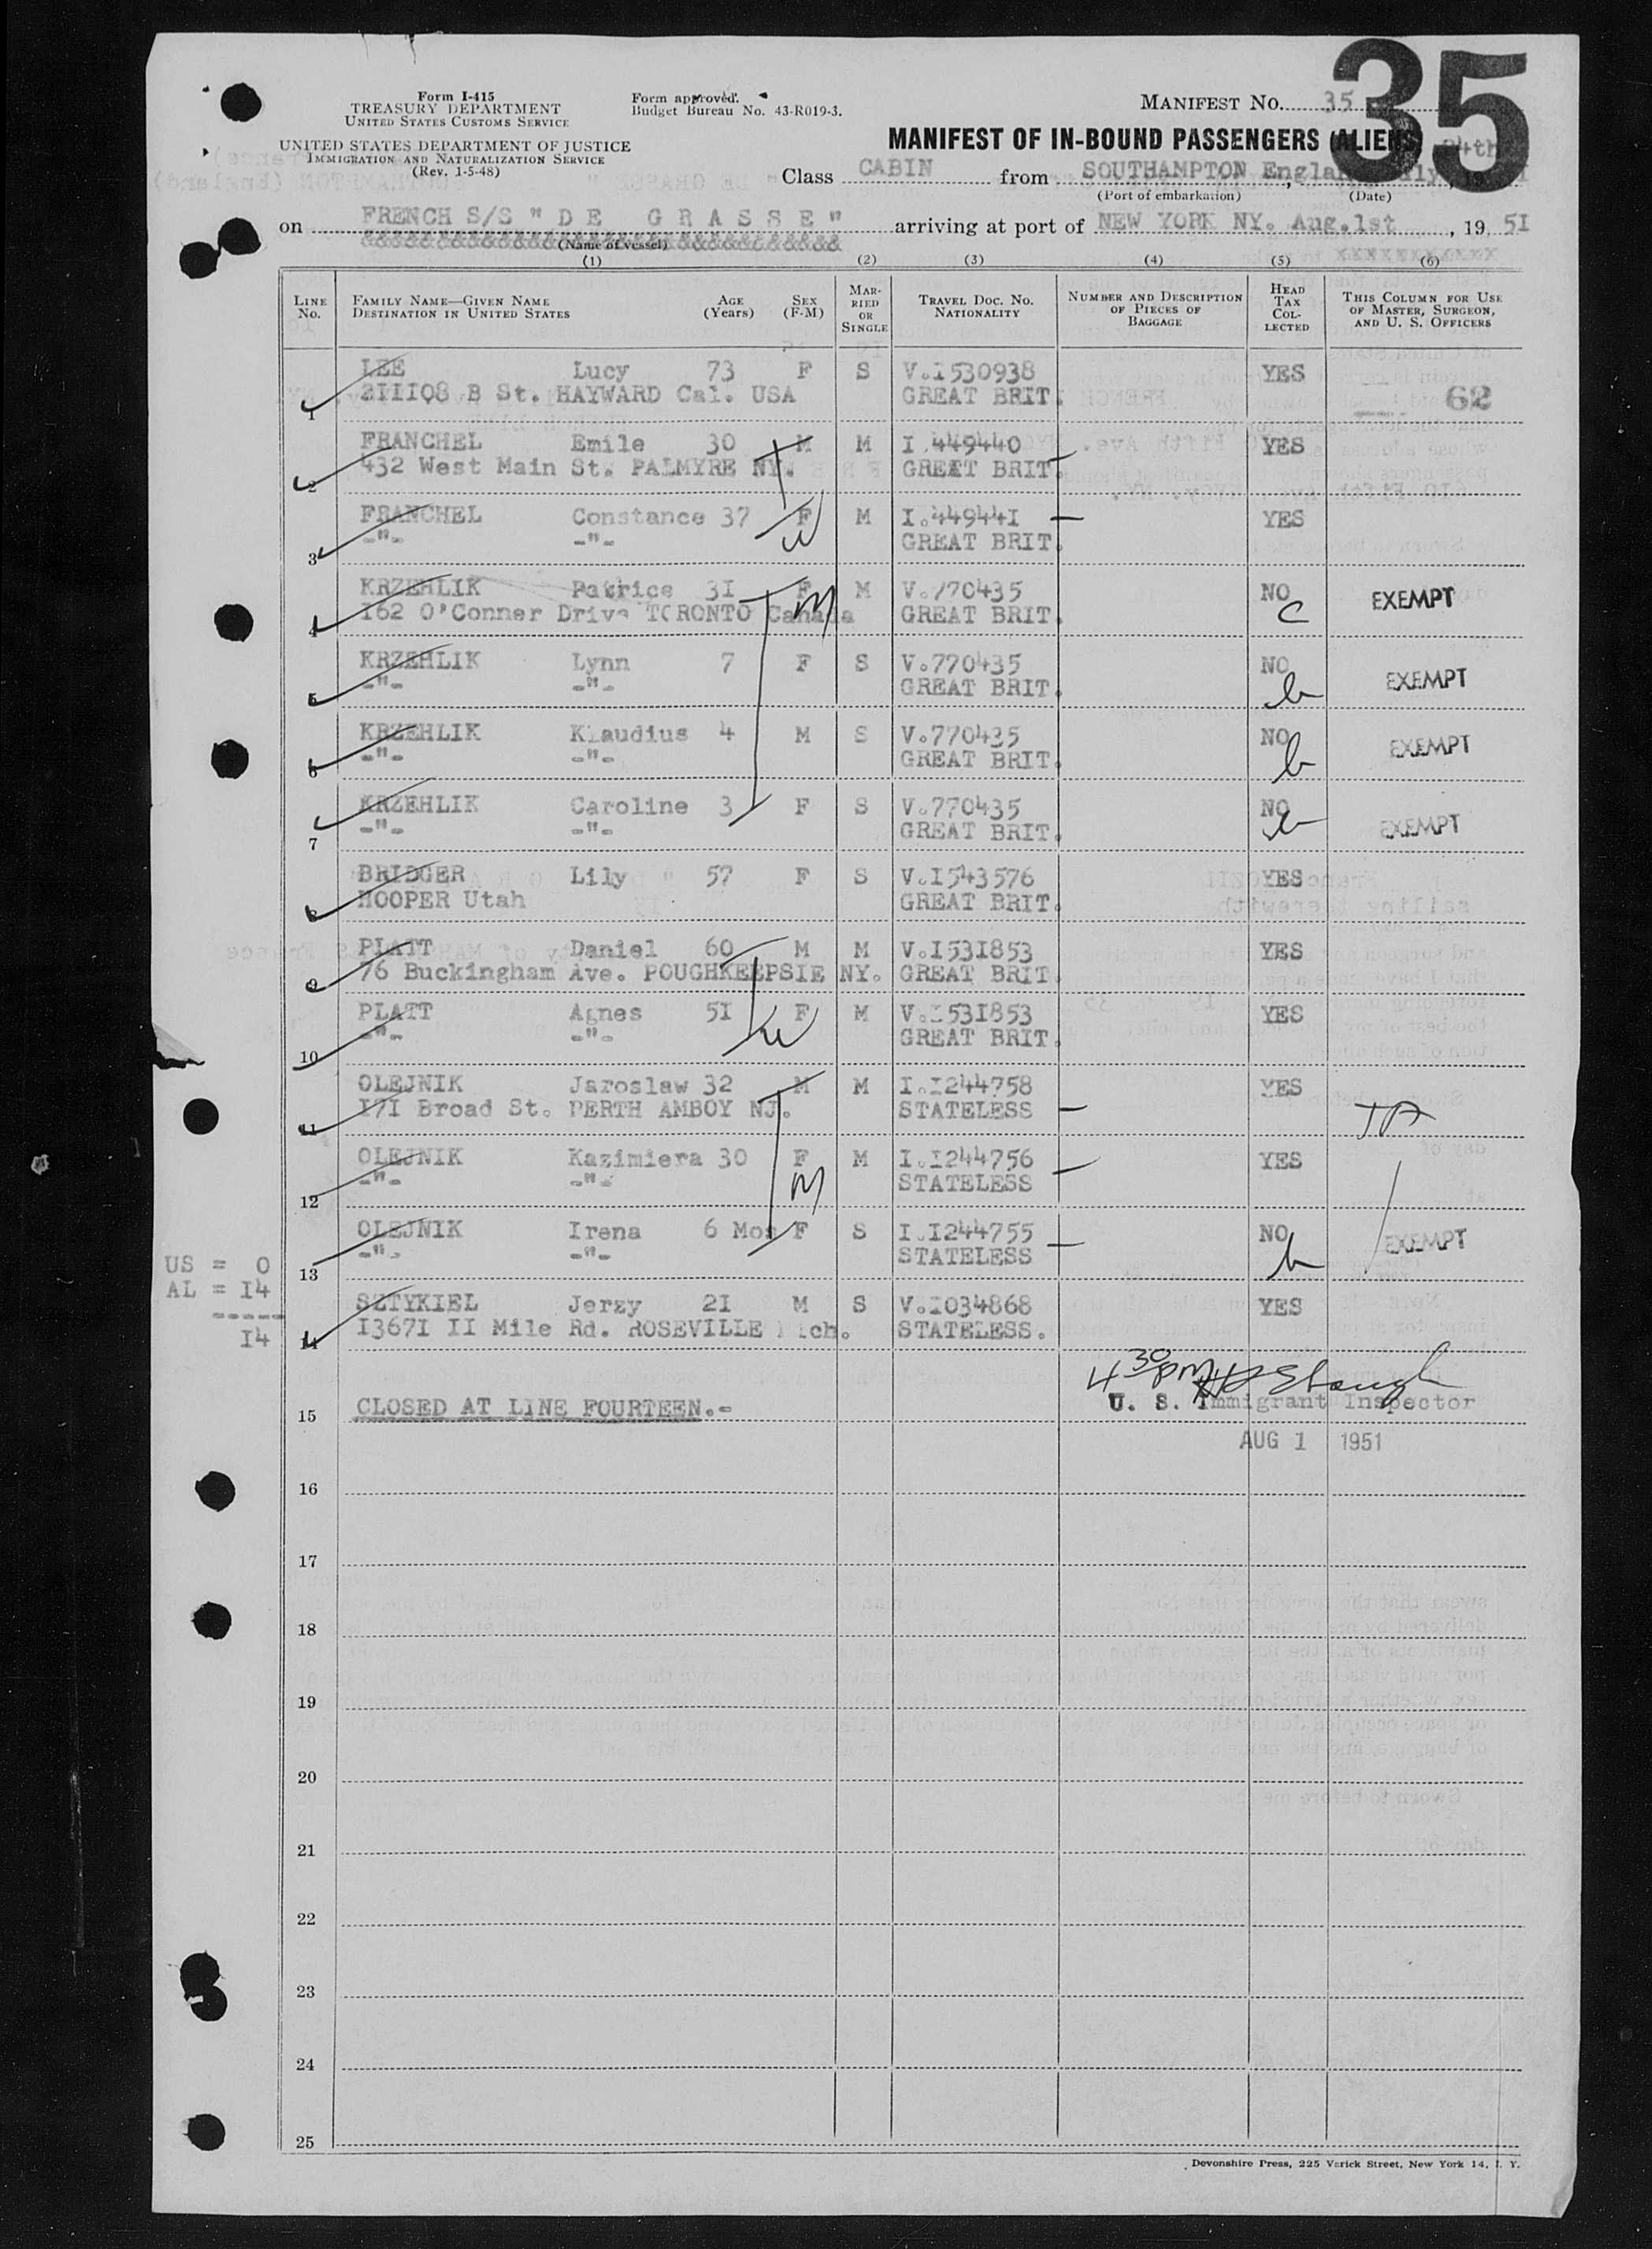 35
Form I-415
TREASURY DEPARTMENT
UNITED STATES CUSTOMS SERVICE
UNITED STATES DEPARTMENT OF JUSTICE
IMMIGRATION AND NATURALIZATION SERVICE
(Rev. 1-5-48)
Form approved.
Budget Bureau No. 43-R019-3.
MANIFEST NO. 35
MANIFEST OF IN-BOUND PASSENGERS (ALIENS)
Class CABIN from SOUTHAMPTON England, 24th, 19
(Port of embarkation) (Date)
on FRENCH S/S " D E G R A S S E " arriving at port of NEW YORK NY. Aug.1st, 19 5I
(Name of vessel)
(1) (2) (3) (4) (5) (6)
LINE No. FAMILY NAME—GIVEN NAME DESTINATION IN UNITED STATES AGE (Years) SEX (F-M) MARRIED OR SINGLE TRAVEL DOC. NO. NATIONALITY NUMBER AND DESCRIPTION OF PIECES OF BAGGAGE HEAD TAX COLLECTED THIS COLUMN FOR USE OF MASTER, SURGEON, AND U. S. OFFICERS
LEE Lucy 73 F S V.I530938 YES
1 2IIIQ8 B St. HAYWARD Cal. USA GREAT BRIT. 62
FRANCHEL Emile 30 M M I.449440 YES
2 432 West Main St. PALMYRE NY. GREAT BRIT.
FRANCHEL Constance 37 F M I.44944I YES
3 -"- -"- GREAT BRIT.
KRZEHLIK Patrice 3I F M V.770435 NO EXEMPT
4 I62 O'Conner Drive TORONTO Canada GREAT BRIT. C
KRZEHLIK Lynn 7 F S V.770435 NO EXEMPT
5 -"- -"- GREAT BRIT. b
KRZEHLIK Klaudius 4 M S V.770435 NO EXEMPT
6 -"- -"- GREAT BRIT. b
KRZEHLIK Caroline 3 F S V.770435 NO EXEMPT
7 -"- -"- GREAT BRIT. b
BRIDGER Lily 57 F S V.I543576 YES
8 HOOPER Utah GREAT BRIT.
PLATT Daniel 60 M M V.I53I853 YES
9 76 Buckingham Ave. POUGHKEEPSIE NY. GREAT BRIT.
PLATT Agnes 5I F M V.I53I853 YES
10 -"- -"- GREAT BRIT.
OLEJNIK Jaroslaw 32 M M I.I244758 YES
11 I7I Broad St. PERTH AMBOY NJ. STATELESS
OLEJNIK Kazimiera 30 F M I.I244756 YES
12 -"- -"- STATELESS
OLEJNIK Irena 6 Mos F S I.I244755 NO EXEMPT
13 -"- -"- STATELESS b
US = 0
AL = I4
-----
I4
SZTYKIEL Jerzy 2I M S V.I034868 YES
14 I367I II Mile Rd. ROSEVILLE Mich. STATELESS.
4 30 PM
15 CLOSED AT LINE FOURTEEN.- U. S. Immigrant Inspector
AUG 1 1951
16
17
18
19
20
21
22
23
24
25
Devonshire Press, 225 Varick Street, New York 14, N. Y.